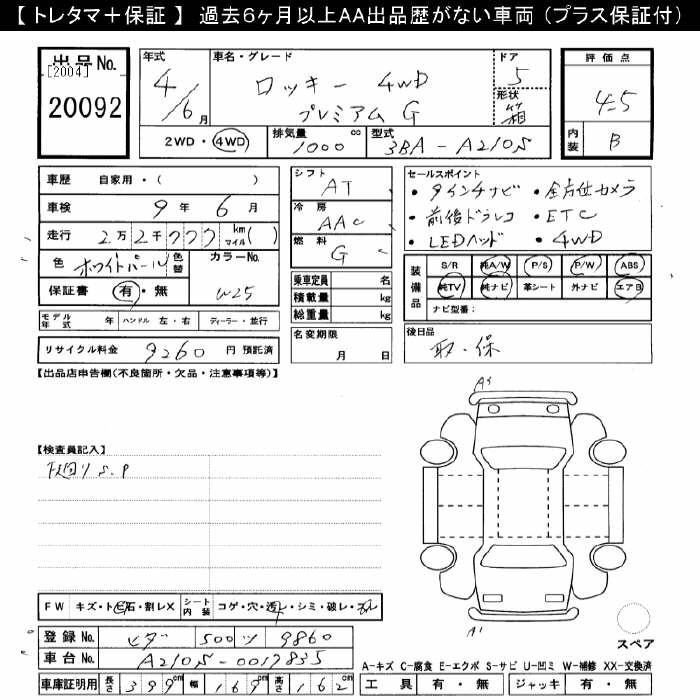 【 トレタマ＋保証 】 過去6ヶ月以上AA出品歴がない車両（プラス保証付）
出品No.
[2004]
20092
年式
4/6月
車名・グレード
ロッキー 4WD
プレミアム G
ドア
5
形状
箱
評価点
4.5
内装
B
2WD・4WD
排気量
1000 cc
型式
3BA-A210S
車歴
自家用・( )
車検
9年 6月
走行
2万2千777 km マイル( )
色
ホワイトパール
色替
カラーNo.
W25
保証書
有・無
モデル年式
年
ハンドル 左・右
ディーラー・並行
リサイクル料金
9260 円 預託済
シフト
AT
冷房
AAC
燃料
G
乗車定員 名
積載量 kg
総重量 kg
名変期限
月 日
セールスポイント
・9インチナビ ・全方位カメラ
・前後ドラレコ ・ETC
・LEDヘッド ・4WD
装備品
S/R 純A/W P/S P/W ABS
純TV 純ナビ 革シート 外ナビ エアB
ナビ型番：
後日品
取・保
【出品店申告欄(不良箇所・欠品・注意事項等)】
【検査員記入】
下廻り S.P
A3
A1
スペア
FW キズ・ト石・割レX
シート内装 コゲ・穴・透レ・シミ・破レ・
登録No.
500 ツ 9860
車台No.
A210S-0017835
車庫証明用
長さ 399cm 幅 169cm 高さ 162cm
A-キズ C-腐食 E-エクボ S-サビ U-凹ミ W-補修 XX-交換済
工具 有・無 ジャッキ 有・無